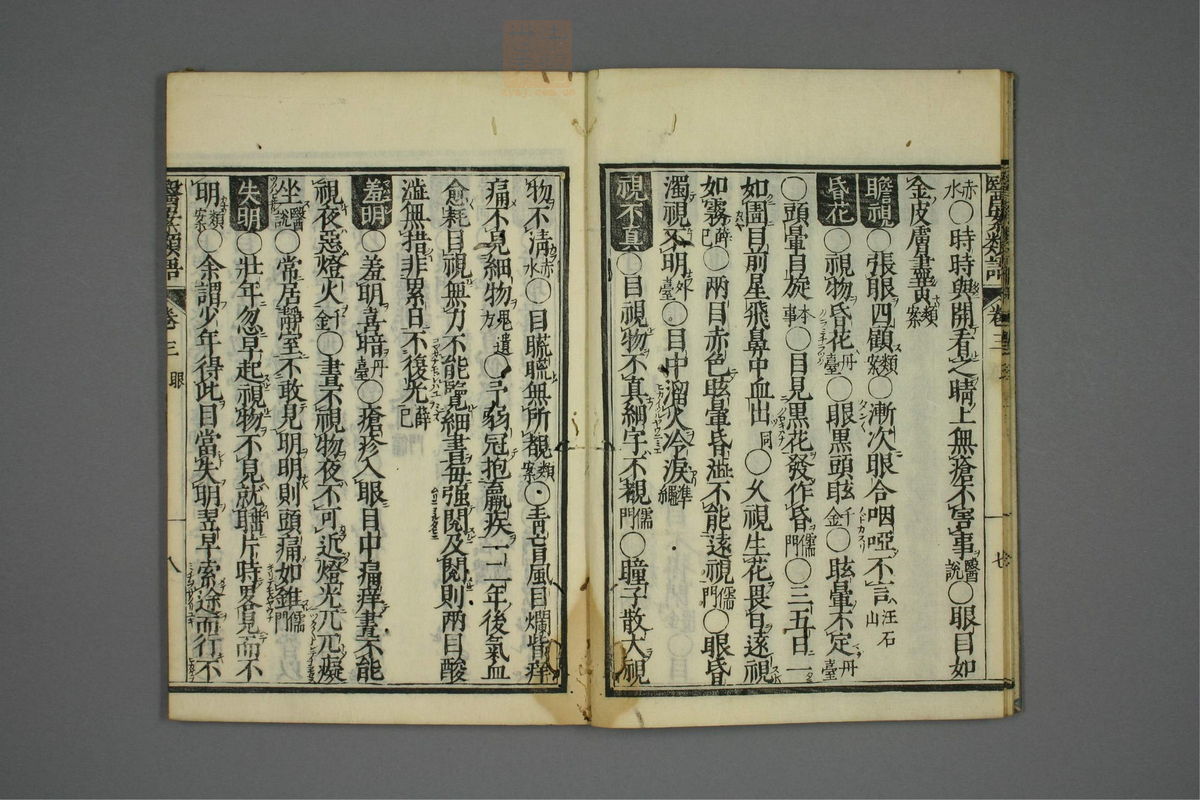 醫案類語 卷三 七
赤水○時時與開看之睛上無瘡不害事醫說○眼目如
金皮膚盡黃類案
瞻視○張眼四顧類案○漸次眼合咽啞不言汪石山
昏花○視物昏花丹臺○眼黑頭眩千金○眩暈不定丹臺
○頭暈目旋本事○目見黑花發作昏儒門○三五日一
如圊目前星飛鼻中血出同○久視生花畏日遠視
如霧薛己○兩目赤色眩暈昏澁不能遠視儒門○眼昏
濁視不明外臺○目中溜火冷淚準繩
視不真○目視物不真細字不覩儒門○瞳子散大視
物不清赤水○目䀮䀮無所覩類案○青盲風目爛眥痒
痛不見細物鬼遺方○弓弱冠抱羸疾一二年後氣血
愈耗目視無力不能覽細書每强閱及閱則兩目酸
澁無措非累日不復光薛己
羞明○羞明喜暗丹臺○瘡疹入眼目中痛痒晝不能
視夜惡燈火千金○晝不視物夜不可近燈光兀兀癡
坐醫說○常居靜室不敢見明明則頭痛如錐儒門
失明○壯年忽早起視物不見就睡片時畧見而不
明類案○余謂少年得此目當失明翌早索途而行不
醫案類語 卷三 眼 八